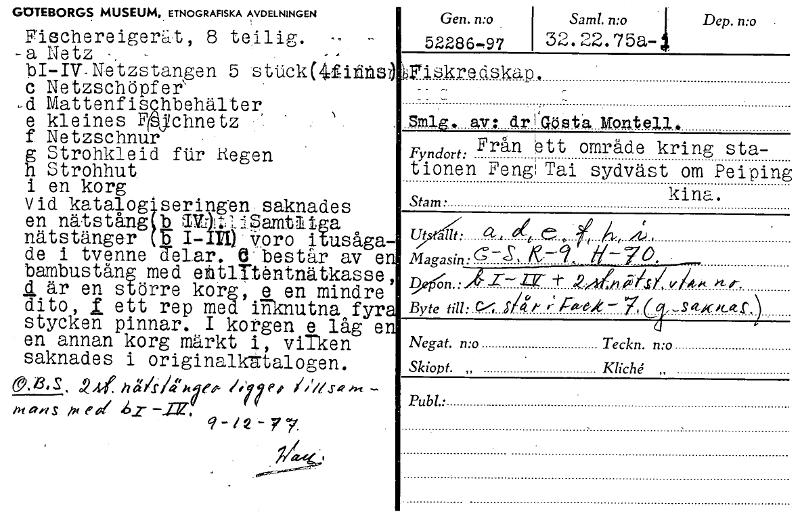 GÖTEBORGS MUSEUM, ETNOGRAFISKA AVDELNINGEN
Fischereigerät, 8 teilig.
a Netz
bI-IV Netzstangen 5 stück(4finns)
c Netzschöpfer
d Mattenfischbehälter
e kleines Fischnetz
f Netzschnur
g Strohkleid für Regen
h Strohhut
i en korg
Vid katalogiseringen saknades
en nätstång(b IV). Samtliga
nätstänger (b I-III) voro itusåga-
de i tvenne delar. c består av en
bambustång med entlitentnätkasse,
d är en större korg, e en mindre
dito, f ett rep med inknutna fyra
stycken pinnar. I korgen e låg en
en annan korg märkt i, vilken
saknades i originalkatalogen.
O.B.S. 2st. nätstänger ligger tillsam-
mans med bI-IV.
9-12-77.
Gen. n:o
52286-97
Saml. n:o
32.22.75a-i
Dep. n:o
Fiskredskap.
Smlg. av: dr Gösta Montell.
Fyndort: Från ett område kring sta-
tionen Feng Tai sydväst om Peiping
kina.
Stam:
Utställt: a, d, e, f, h, i.
Magasin: G-S. R-9. H-70.
Depon.: b I-IV + 2 st. nätst. utan nr.
Byte till: c. står i Fack-7. (g saknas.)
Negat. n:o Teckn. n:o
Skiopt. „ Kliché „
Publ.: